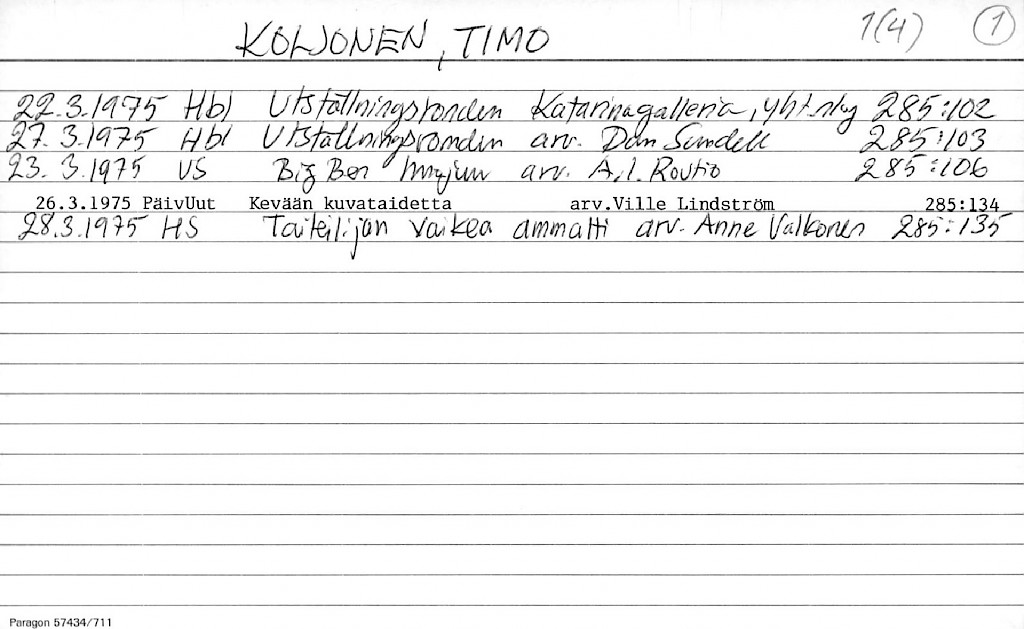 KOLJONEN, TIMO 1(4) 1
22.3.1975 Hbl Utställningsronden Katarinagalleria, yht.näy 285:102
27.3.1975 Hbl Utställningsronden arv. Dan Sundell 285:103
23.3.1975 US Big Ben arv. A.I. Routio 285:106
26.3.1975 PäivUut Kevään kuvataidetta arv.Ville Lindström 285:134
28.3.1975 HS Taiteilijan vaikea ammatti arv. Anne Valkonen 285:135
Paragon 57434/711